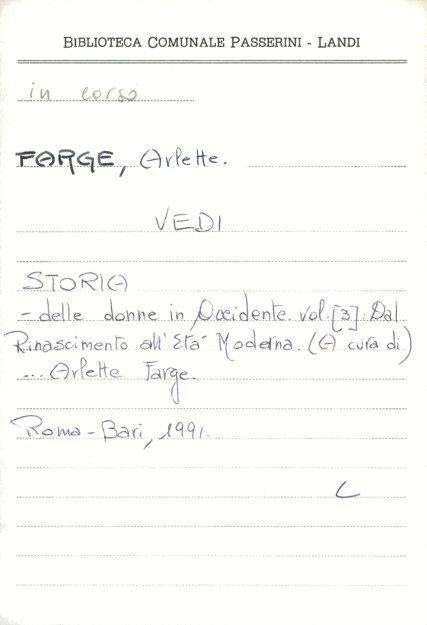 BIBLIOTECA COMUNALE PASSERINI - LANDI
in corso
FARGE, Arlette.
VEDI
STORIA
- delle donne in Occidente. vol. [3]. Dal
Rinascimento all'Età Moderna. (A cura di)
... Arlette Farge.
Roma - Bari, 1991.
C